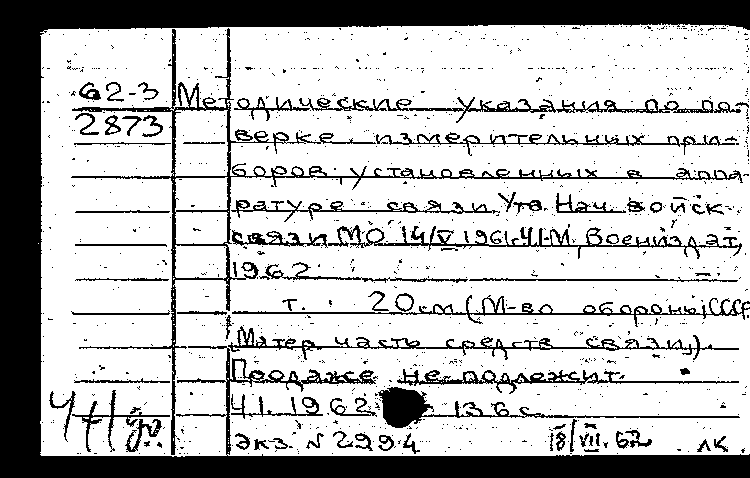 62-3 Методические указания по по-
2873 верке измерительных при-
боров, установленных в аппа-
ратуре связи. Утв. Нач. войск
связи МО 14/V 1961г. Ч.1- М., Воениздат,
1962
т. 20 см (М-во обороны СССР.
Матер. часть средств связи).
Продаже не подлежит.
Ч1. 1962 136 с.
экз. N 2994 18/VII. 62 лк.